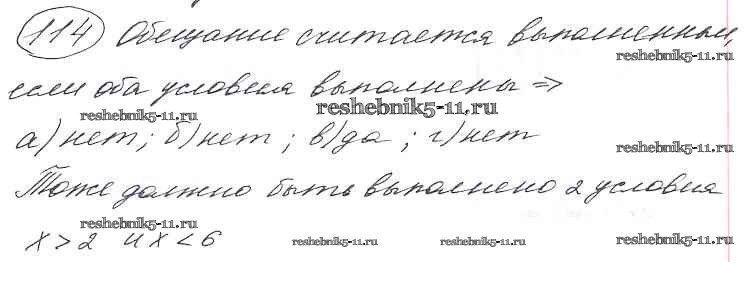 114 Обещание считается выполненным,
reshebnik5-11.ru
если оба условия выполнены =>
reshebnik5-11.ru reshebnik5-11.ru
а) нет; б) нет; в) да; г) нет
reshebnik5-11.ru
Тоже должно быть выполнено 2 условия
reshebnik5-11.ru
x > 2 и x < 6
reshebnik5-11.ru reshebnik5-11.ru reshebnik5-11.ru